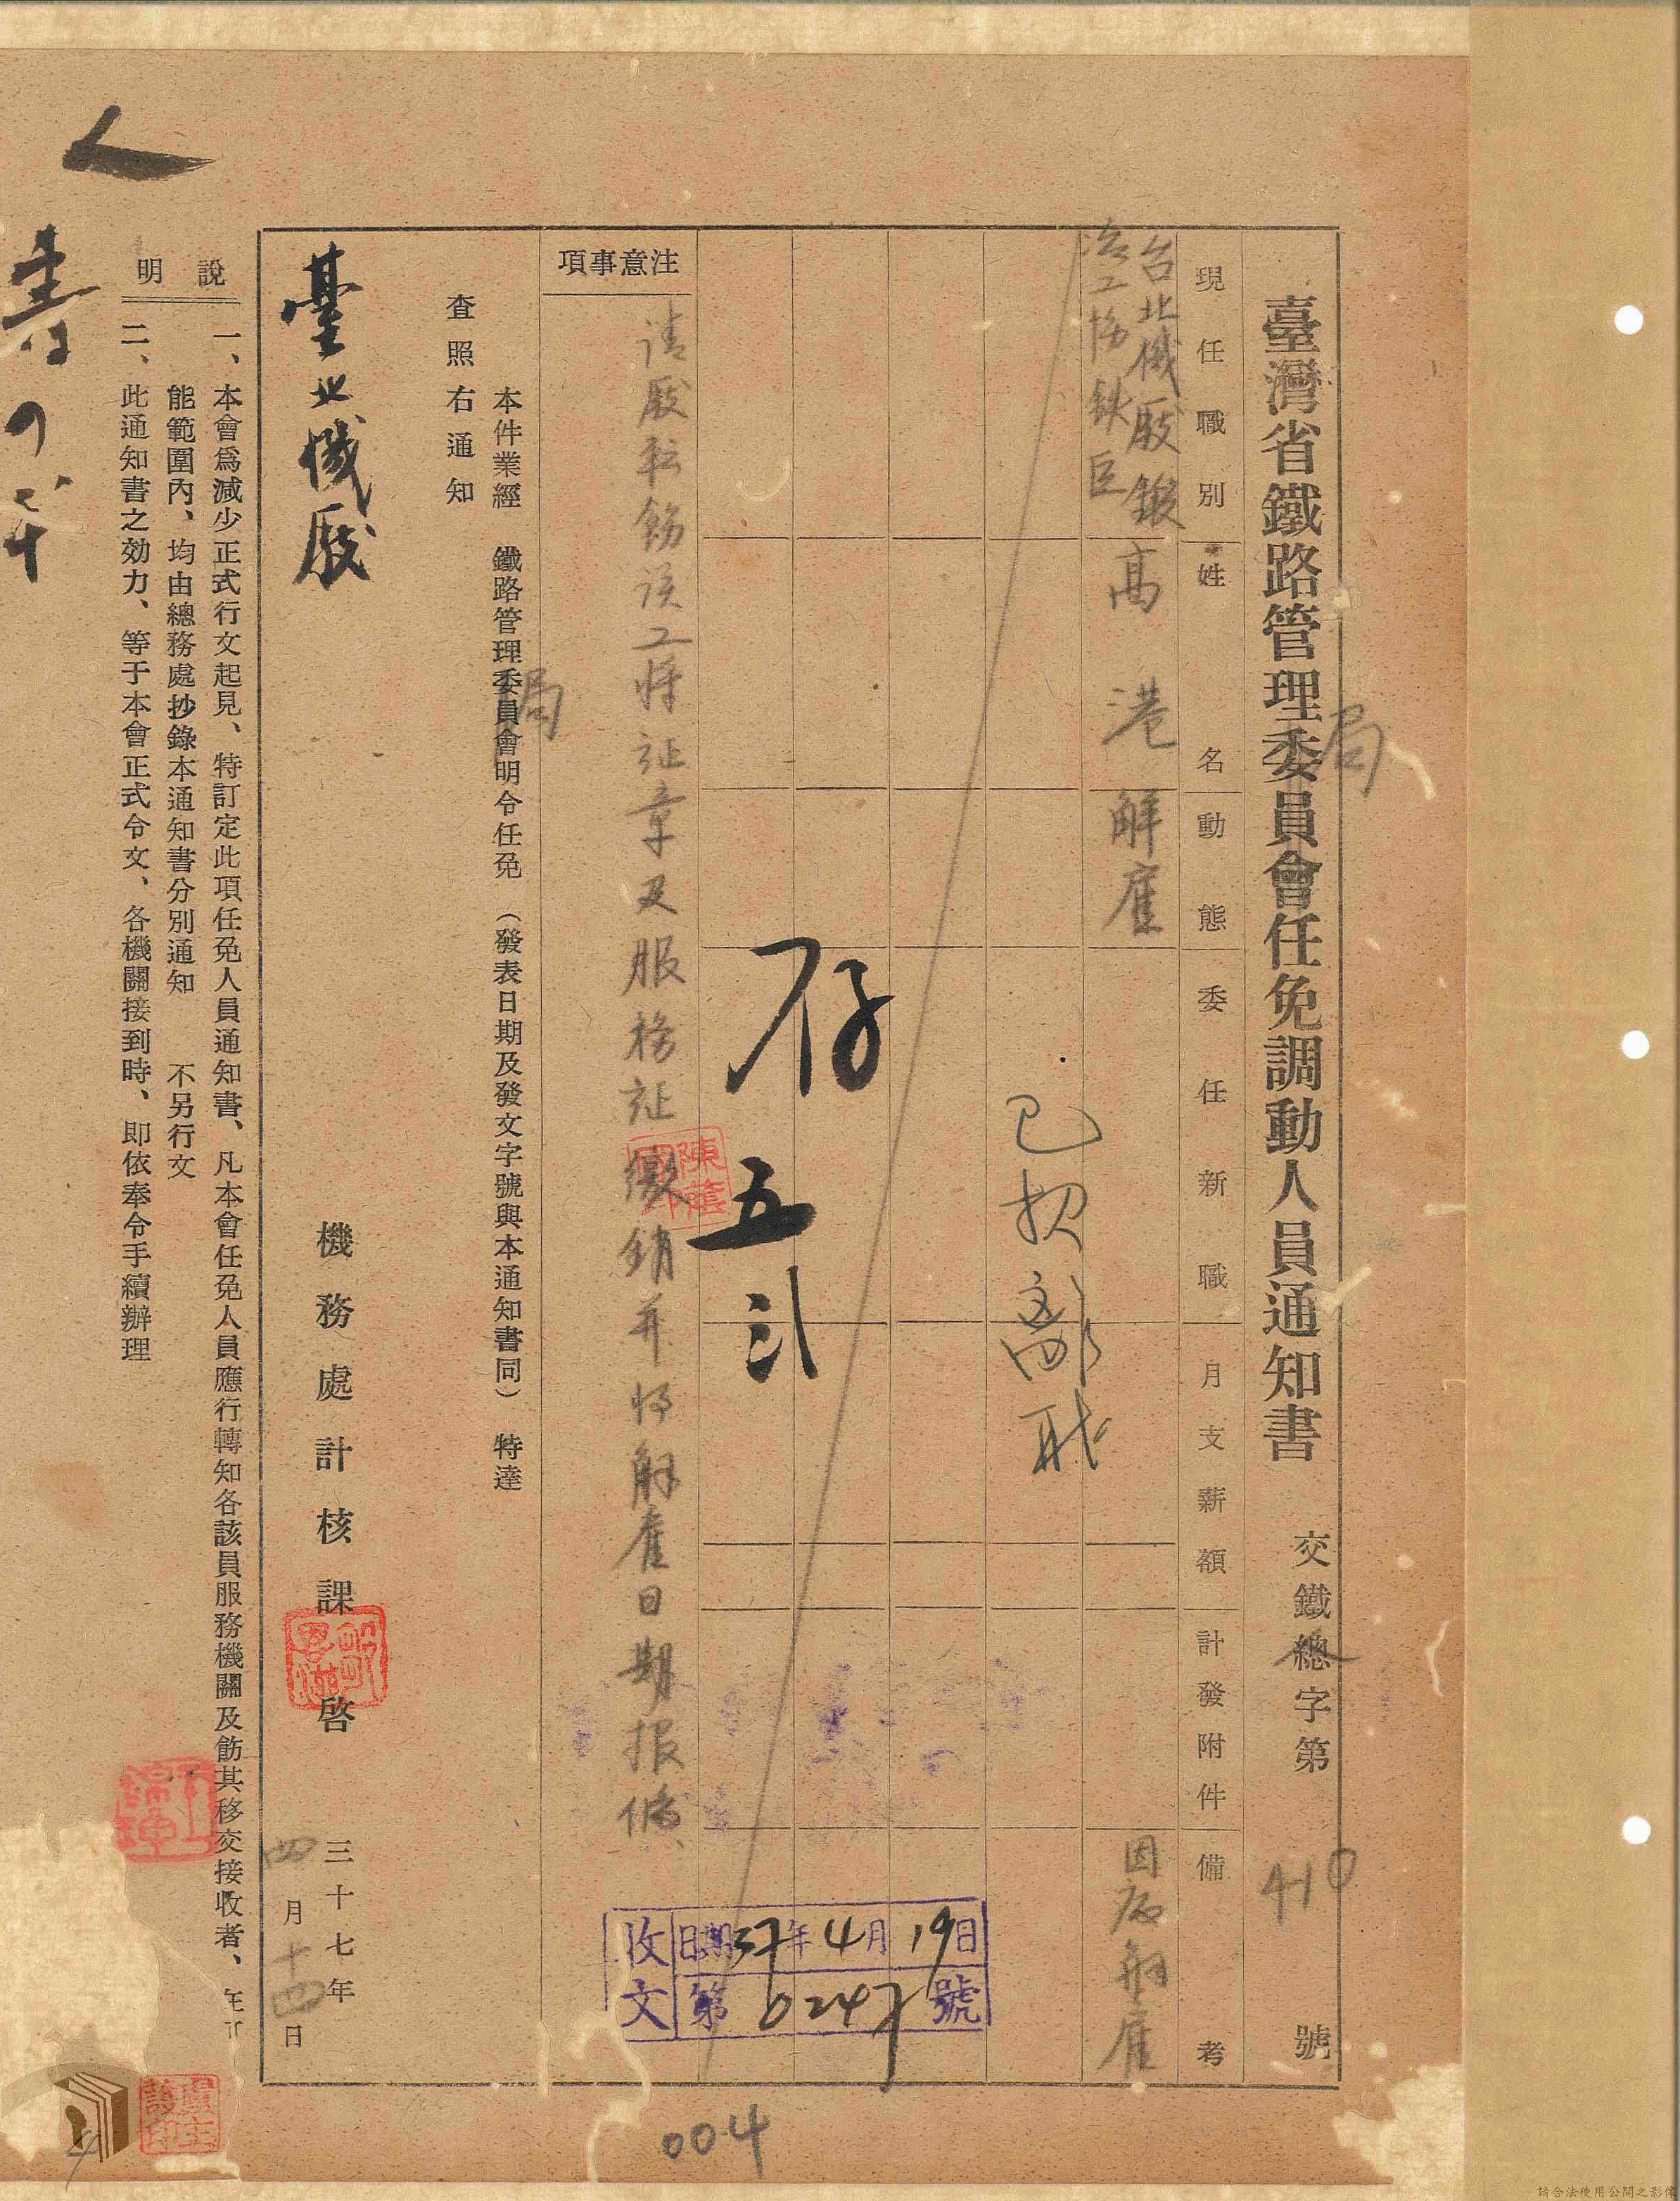 臺灣省鐵路管理委員會任免調動人員通知書 交鐵總字第 410 號
局
人
現任職別
姓名
動態
委任新職
月支薪額
計發附件
備考
台北機廠鍛
冶工場鉄臣
高港
解雇
因病解雇
已抄部
存
五
注意事項
請厰転飭該工將証章及服務証繳銷并將解雇日期報備
陳蔭國印
收文
日期37年4月19日
第0247號
本件業經 鐵路管理委員會明令任免(發表日期及發文字號與本通知書同) 特達
局
查照右通知
臺北機厰
機務處計核課 啓
三十七年
四月十四日
說明
一、本會爲減少正式行文起見、特訂定此項任免人員通知書、凡本會任免人員應行轉知各該員服務機關及飭其移交接收者、在可
能範圍內、均由總務處抄錄本通知書分別通知 不另行文
二、此通知書之効力、等于本會正式令文、各機關接到時、即依奉令手續辦理
人
004
4
請合法使用公開之影像